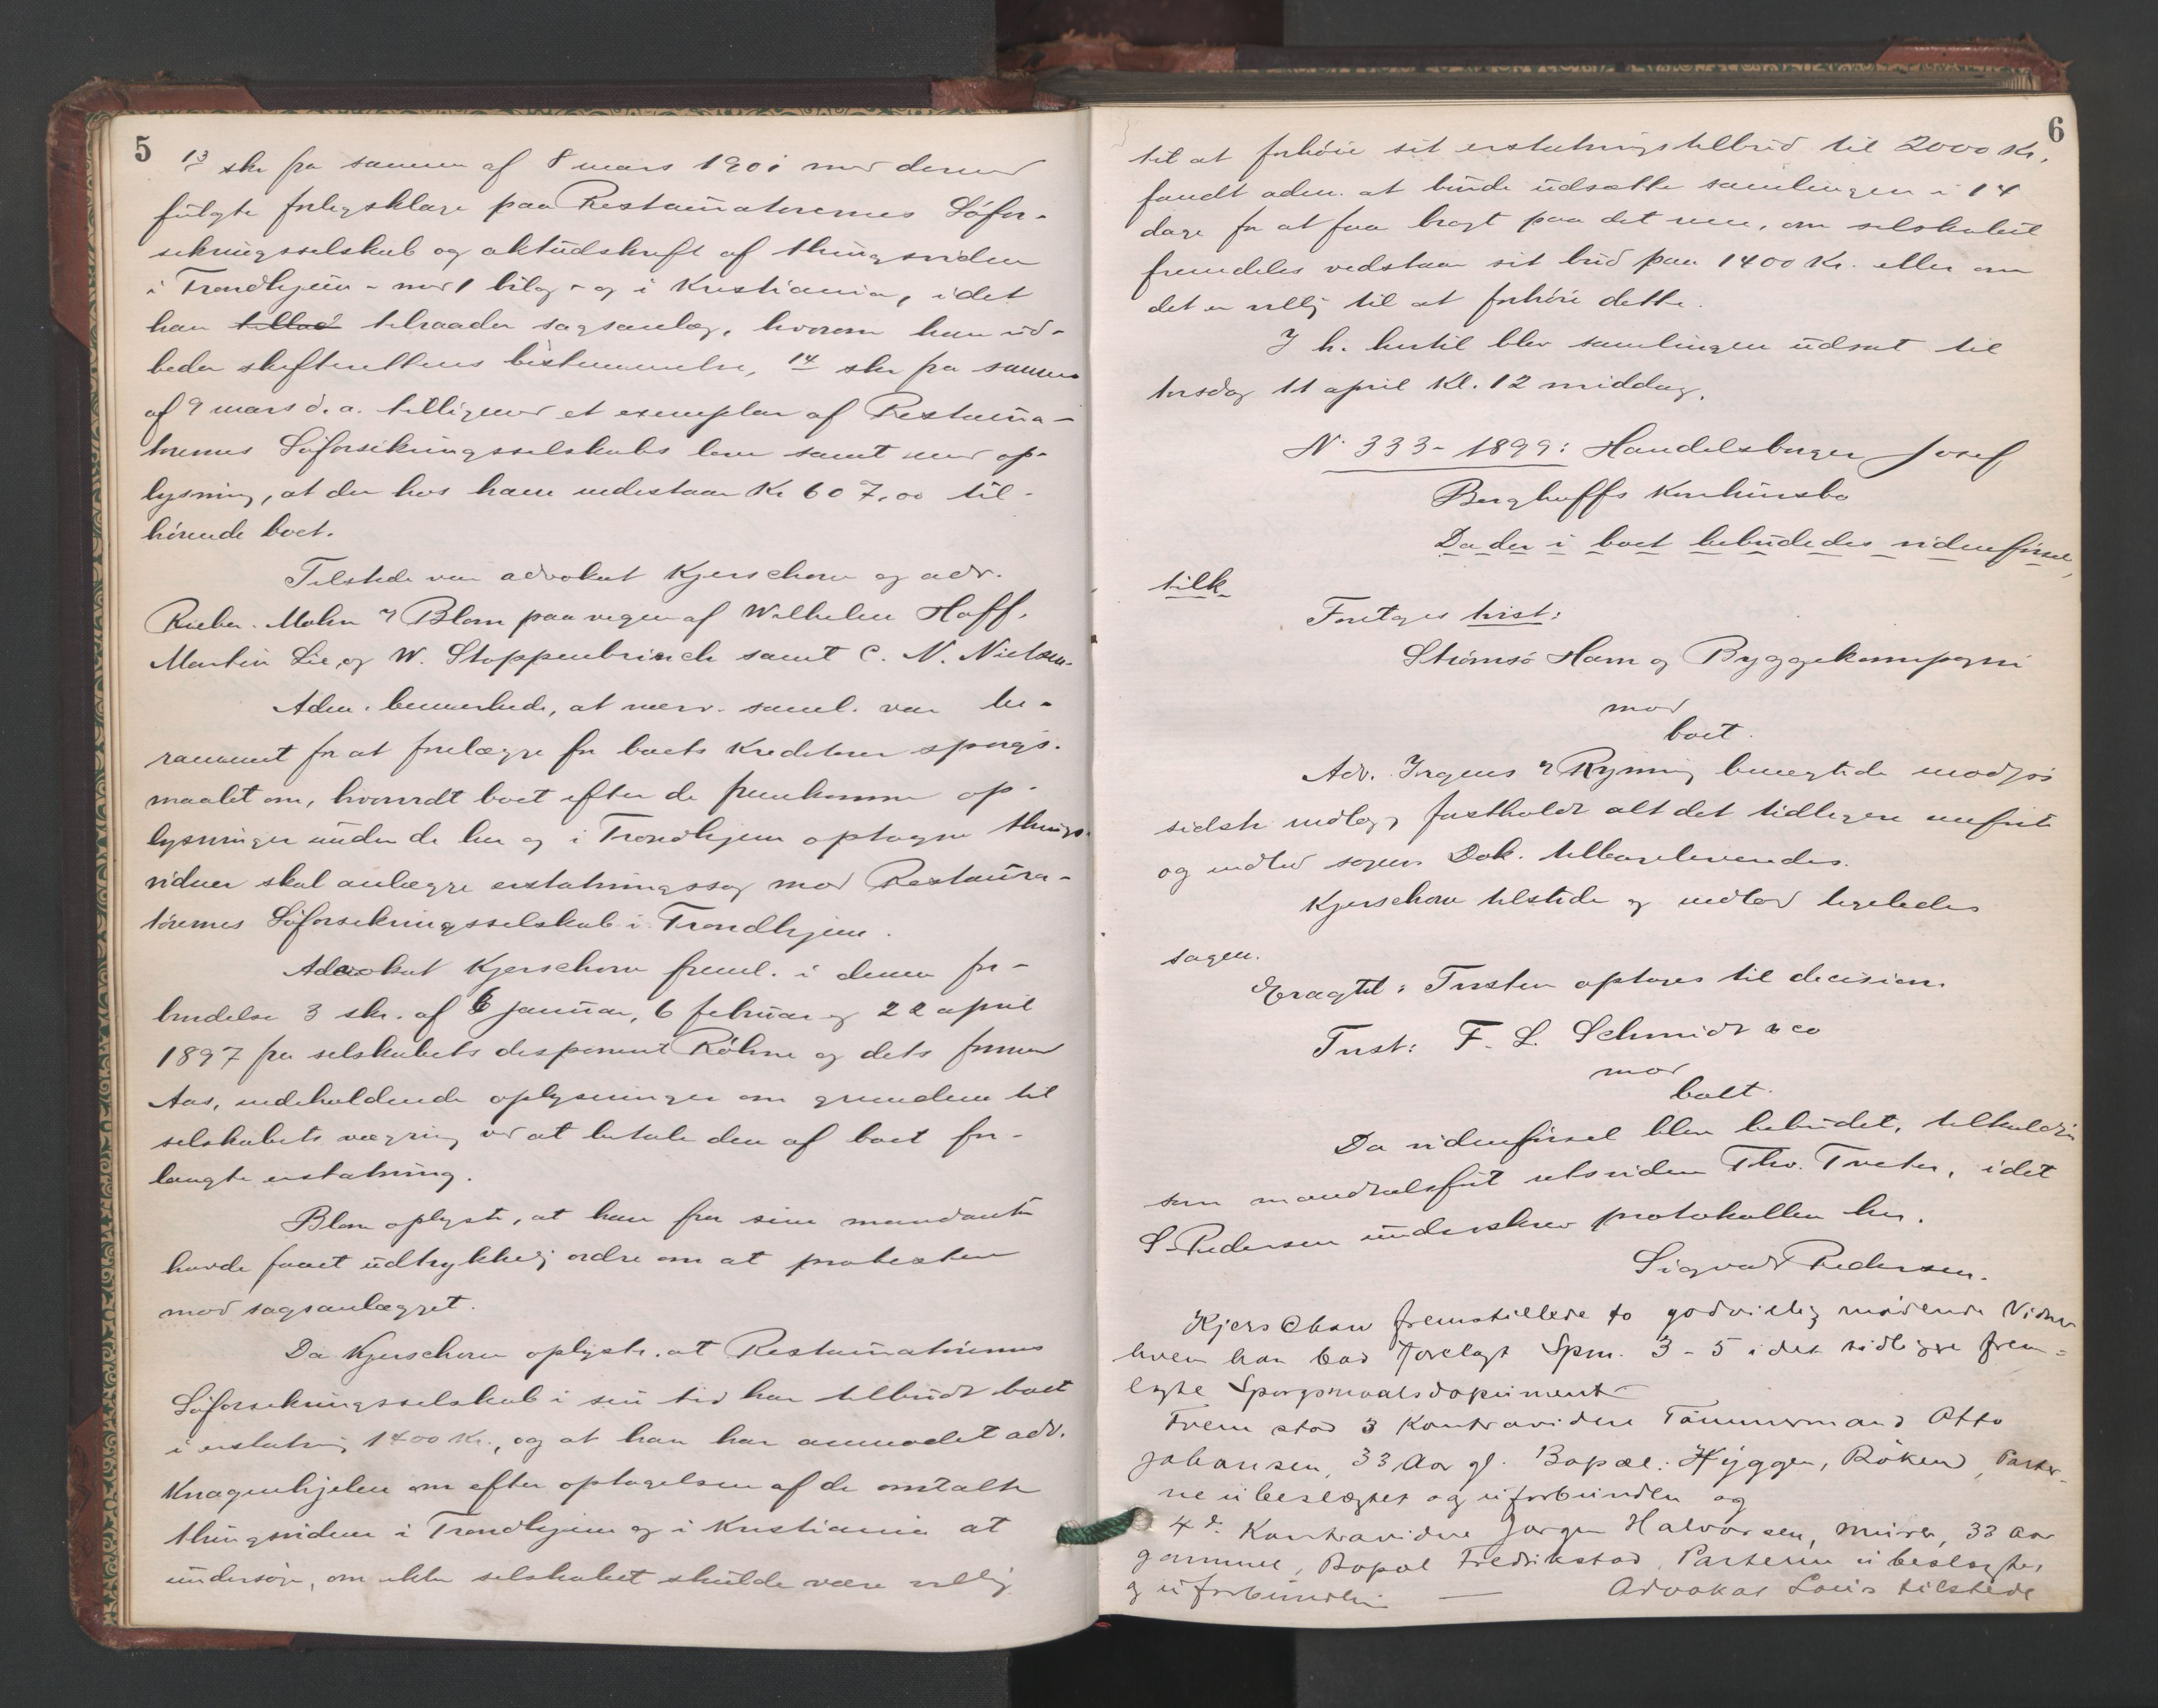 5
13 skr fra samme af 8 mars 1901 med derved
fulgte forligsklage paa Restauratørernes Söfor-
sikringsselskab og aktudskrift af thingsviden
i Trondhjem - med 1 bilag - og i Kristiania, idet
han tillad tilraader sagsanlæg, hvorom han ud-
beder skifterettens bestemmelse, 14 skr fra samme
af 9 mars d. a. tilligemed et exemplar af Restaura-
törernes Söforsikringsselskabs love samt med op-
lysning, at der hos ham indestaar Kr 607,00 til-
hörende boet.
Tilstede var advokat Kjerschow og adv.
Rieber-Mohn v Blom paa vegne af Wilhelm Hoff,
Martin Lie og W. Stoppenbrinck samt C. N. Nielsen.
Adm. bemærkede, at nærv. saml. var be-
rammet for at forelægge for boets Kreditorer spørgs-
maalet om, hvorvidt boet efter de fremkomne op-
lysninger under de her og i Trondhjem optagne things-
vidner skal anlægge erstatningssag mod Restaura-
törernes Söforsikringsselskab i Trondhjem.
Advokat Kjerschow freml. i denne for-
bindelse 3 skr. af 6 januar, 6 februar og 22 april
1897 fra selskabets disponent Röhne og dets formand
Aas, indeholdende oplysninger om grundene til
selskabets vægring ved at betale den af boet for-
langte erstatning.
Blom oplyste, at han fra sine mandanter
havde faaet udtrykkelig ordre om at protestere
mod sagsanlægget.
Da Kjerschow oplyste, at Restauratörernes
Söforsikringsselskab i sin tid har tilbudt boet
i erstatning 1400 Kr., og at han har anmodet adv.
Knagenhjelm om efter optagelsen af de omtalte
thingsvidner i Trondhjem og i Kristiania at
undersöge, om ikke selskabet skulde være villig
6
til at forhöie sit erstatningstilbud til 2000 Kr,
fandt adm. at burde udsætte samlingen i 14
dage for at faa bragt paa det rene, om selskabet
fremdeles vedstaar sit bud paa 1400 Kr. eller om
det er villig til at forhöie dette.
I h. hertil blev samlingen udsat til
torsdag 11 april Kl. 12 middag.
N. 333-1899: Handelsborger Josef
Berghoffs Konkursbo
Da der i boet bebudedes vidneförsel,
tilk.
Foretoges tvist:
Strömsö Havn og Byggekompagni
mod
boet.
Adv. Irgens v Ryning benegtede modpös
sidste indlæg, fastholdt alt det tidligere anförte
og indlod sagen. Dok. tilbageleveredes.
Kjerschow tilstede og indlod ligeledes
sagen.
Eragtet: Tvisten optages til decision.
Tvist: F. L. Schmidt & co
mod
boet.
Da vidneförsel blev bebudet, tilkaldtes
som retsvidne Tho. Treter, idet
S. Pedersen underskrev protokollen her.
Sigvard Pedersen.
Kjerschow fremstillede to godvillig mödende Vidner
hvem han bad forelagt Spm. 3-5 i det tidligere frem-
lagte Spørgsmaalsdokument
Frem stod 3 Kontravidne Tömmermand Otto
Johansen, 33 Aar gl. Bopæl: Hyggen, Röken, Parter-
ne ubeslægtet og uforbunden og
4de Kontravidne Jørgen Halvorsen, murer, 33 Aar
gammel, Bopæl Fredrikstad, Parterne ubeslægtet
og uforbunden — Advokat Louis tilstede